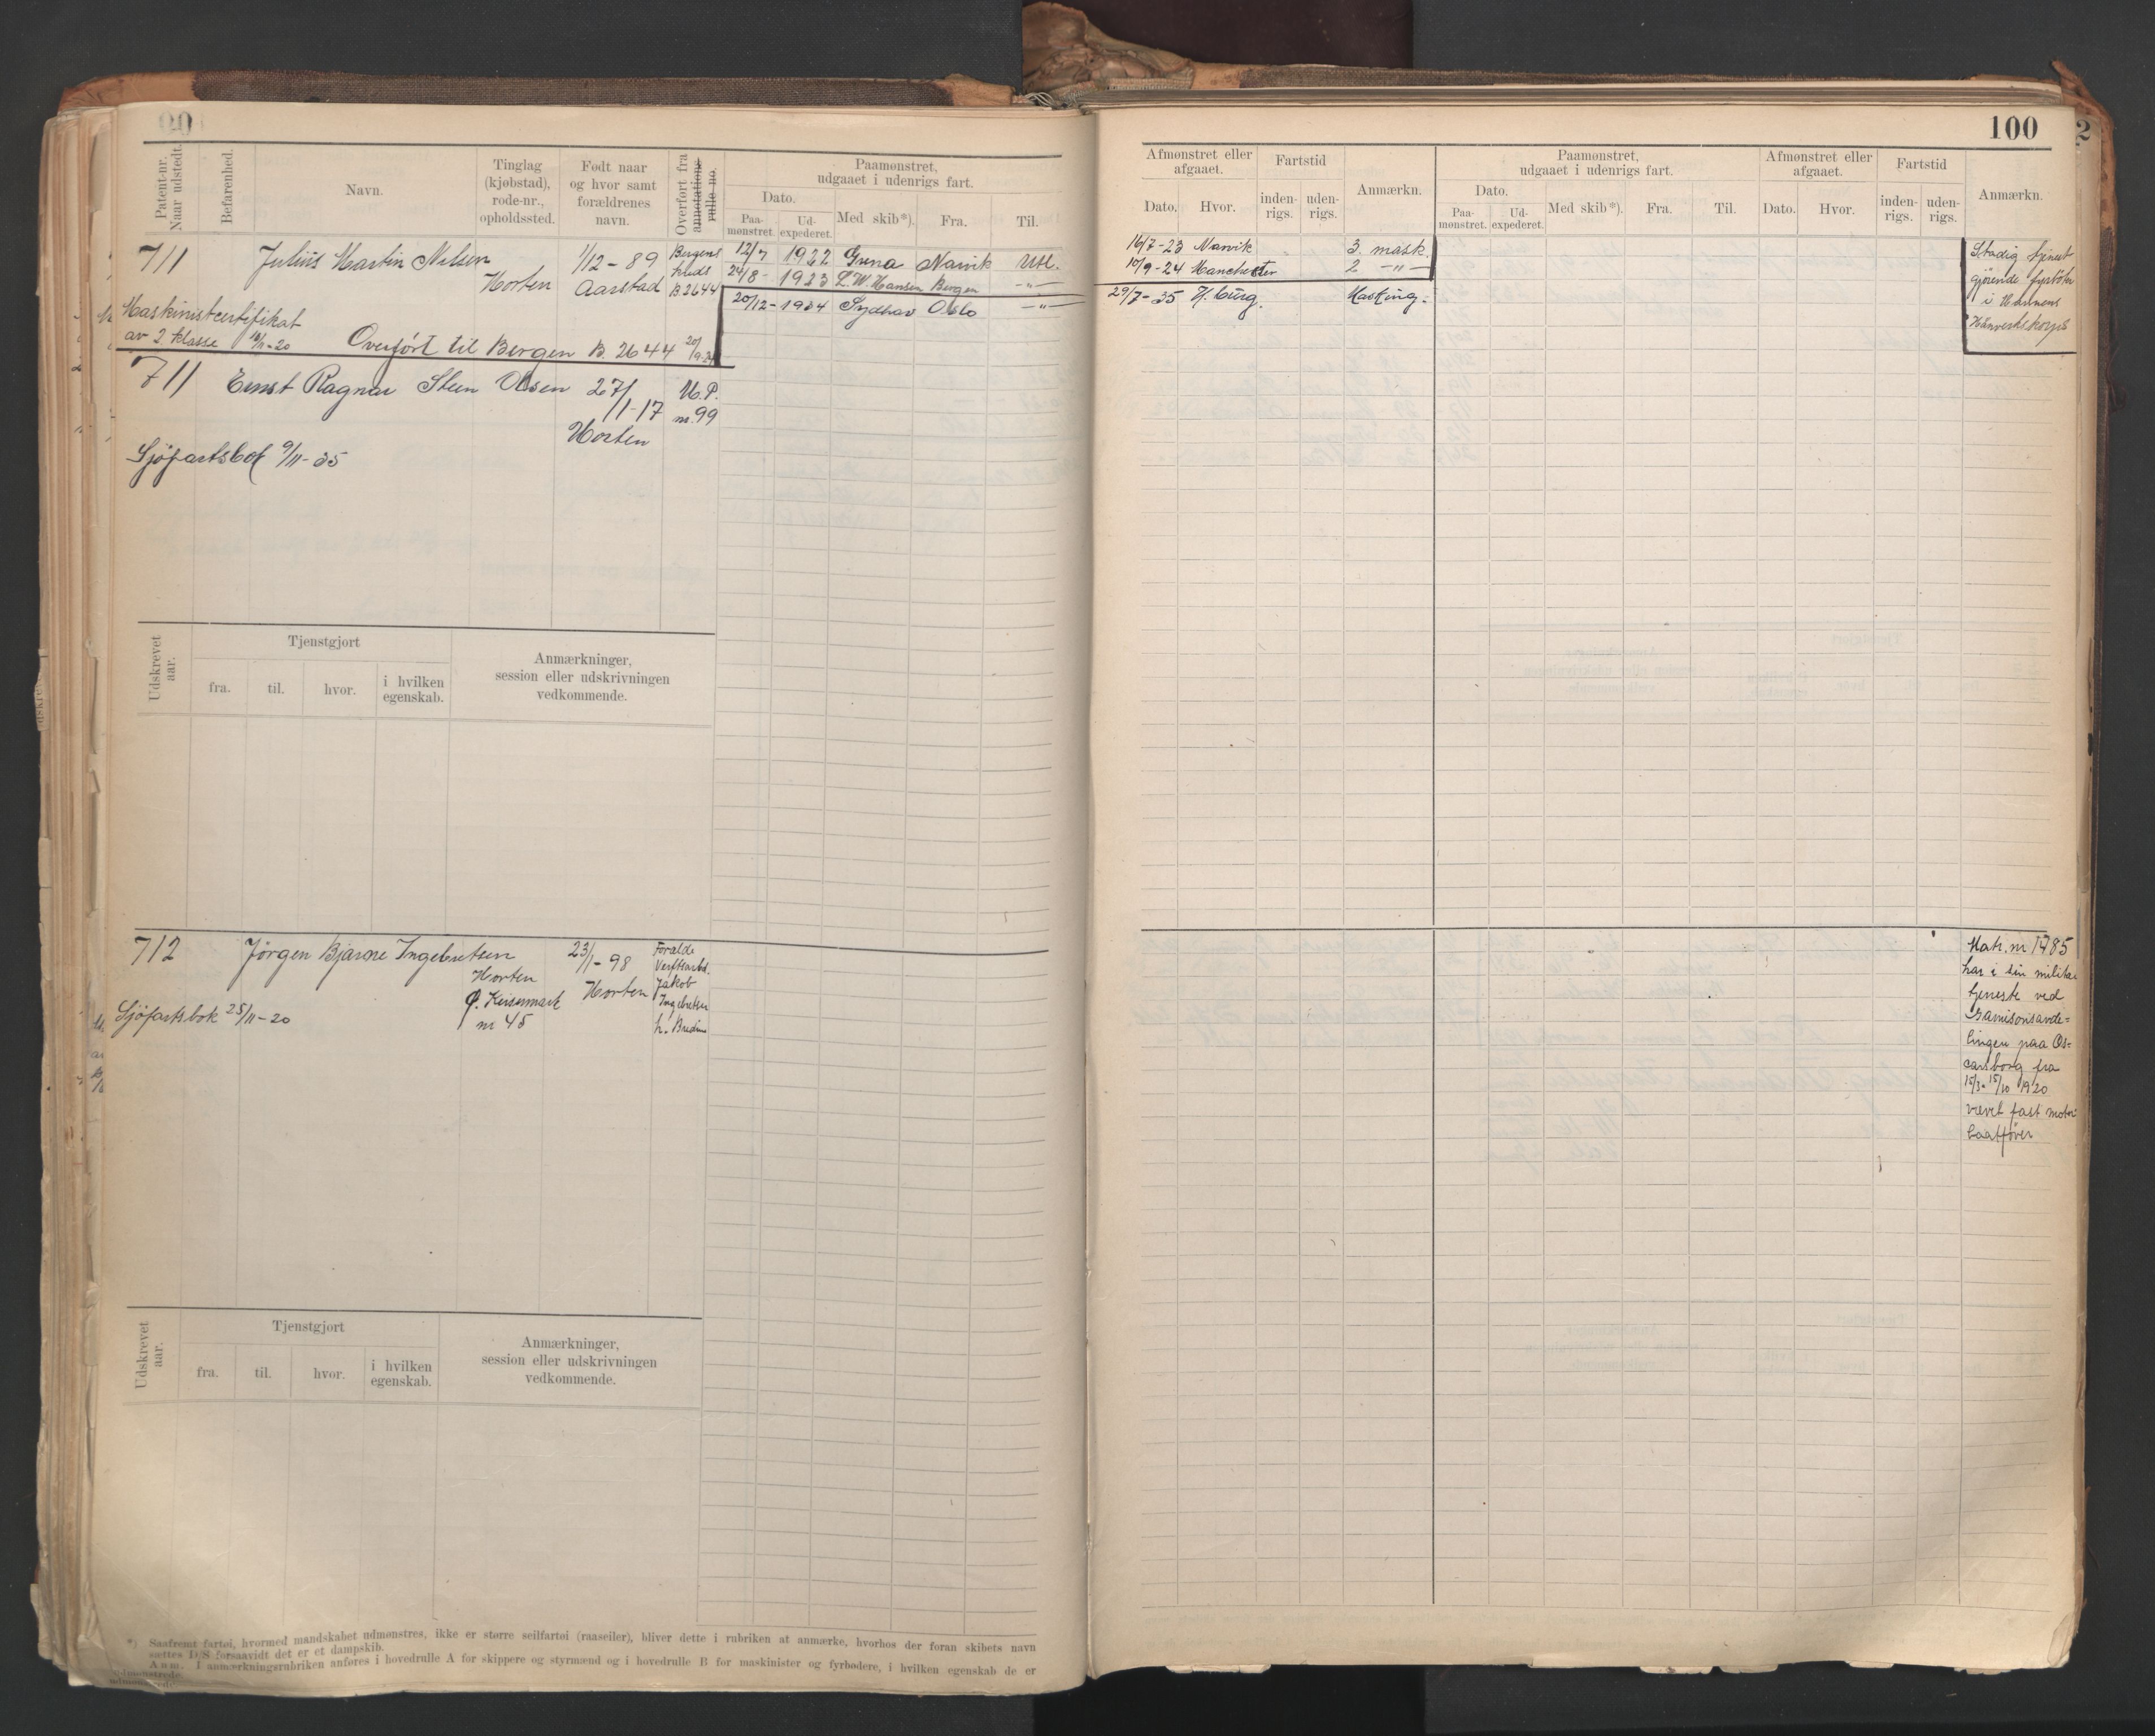 100
2
Patent-nr. Naar udstedt.
Befarenhed.
Navn.
Tinglag (kjøbstad), rode-nr., opholdssted.
Født naar og hvor samt forældrenes navn.
Overført fra annotations rulle no.
Paamønstret, udgaaet i udenrigs fart.
Dato.
Paa-mønstret.
Ud-expederet.
Med skib*).
Fra.
Til.
711 Julius Martin Nilsen 1/12-89 Bergens
Horten Aarstad krets B 2644
12/7 1922 Grena Narvik Utl.
24/8- 1923 L. W. Hansen Bergen -"-
20/12-1934 Sydhav Oslo -"-
Maskinistcertifikat
av 2 klasse 10/11-20 Overført til Bergen B. 2644 20/9-24
711 Ernst Ragnar Steen Olsen 27/1-17 U.P. nr. 99
Horten
Sjøfartsbok 9/11-35
Udskrevet aar.
Tjenstgjort
fra.
til.
hvor.
i hvilken egenskab.
Anmærkninger,
session eller udskrivningen
vedkommende.
712 Jörgen Bjarne Ingebretsen 23/1-98 Forælde
Horten Horten Verftsarbd.
Ø. Keisemark Jakob
nr 45 Ingebretsen
Sjøfartsbok 25/11-20
Udskrevet aar.
Tjenstgjort
fra.
til.
hvor.
i hvilken egenskab.
Anmærkninger,
session eller udskrivningen
vedkommende.
*) Saafremt fartøi, hvormed mandskabet udmønstres, ikke er større seilfartøi (raaseiler), bliver dette i rubriken at anmærke, hvorhos der foran skibets navn
sættes D/S forsaavidt det er et dampskib.
Anm. I anmærkningsrubriken anføres i hovedrulle A for skippere og styrmænd og i hovedrulle B for maskinister og fyrbødere, i hvilken egenskab de er
udmønstrede.
Afmønstret eller afgaaet.
Dato.
Hvor.
Fartstid
inden-rigs.
uden-rigs.
Anmærkn.
Paamønstret,
udgaaet i udenrigs fart.
Dato.
Paa-mønstret.
Ud-expederet.
Med skib*).
Fra.
Til.
Afmønstret eller afgaaet.
Dato.
Hvor.
Fartstid
inden-rigs.
uden-rigs.
Anmærkn.
16/7-23 Narvik 3. mask.
10/9-24 Manchester 2 -"-
29/7-35 H.burg. Masking.
Stadig tjenst
gjørende
i Marinens
Haanverkskorps
Matr. nr 1785
har i sin militær
tjeneste ved
Garnisonsavde=
lingen paa Os=
carsborg fra
15/3-15/10 1920
været fast motor
baatfører